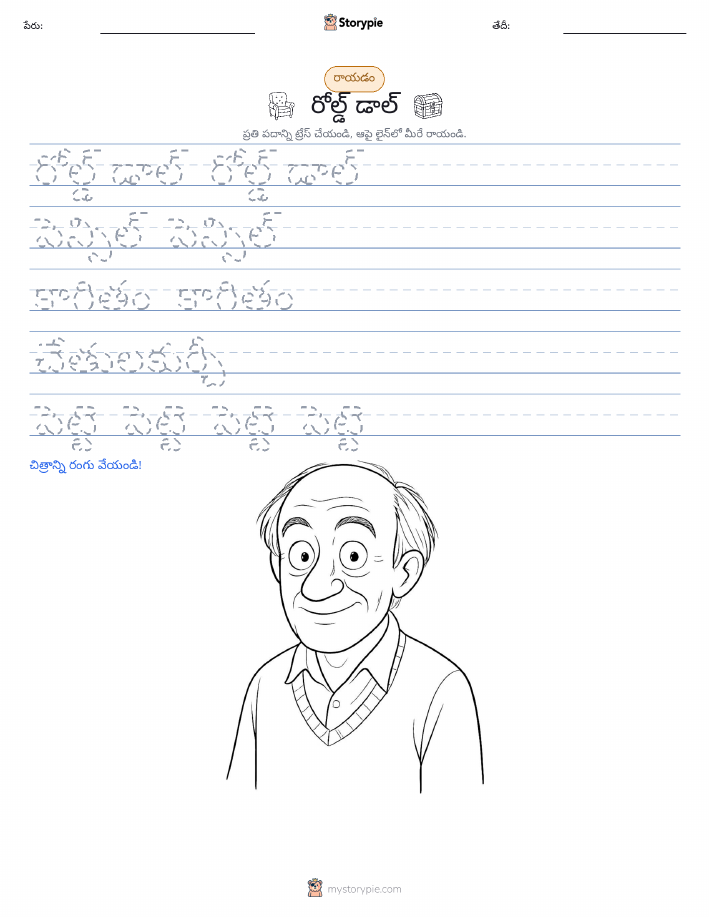 పేరు:
Storypie
తేదీ:
రాయడం
రోల్డ్ డాల్
ప్రతి పదాన్ని ట్రేస్ చేయండి, ఆపై లైన్‌లో మీరే రాయండి.
రోల్డ్ డాల్ రోల్డ్ డాల్
పెన్సిల్ పెన్సిల్
కాగితం కాగితం
చేతులకుర్చీ
పెట్టె పెట్టె పెట్టె పెట్టె
చిత్రాన్ని రంగు వేయండి!
mystorypie.com